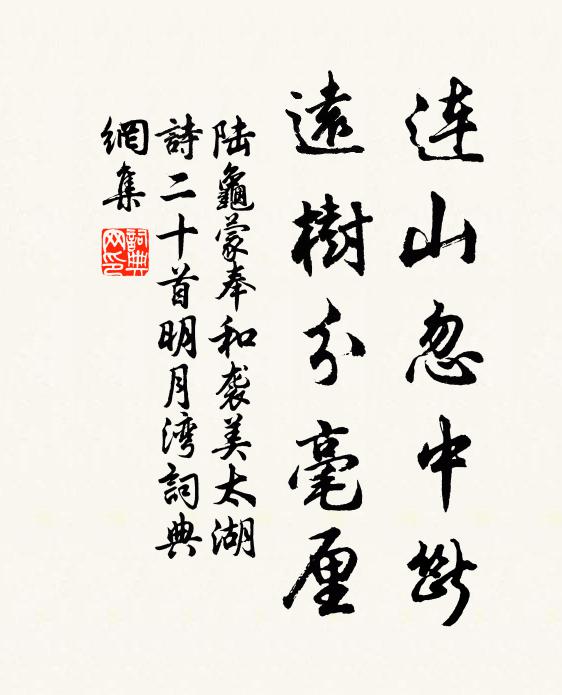 連山忽中斷
遠樹分毫厘
陸龜蒙奉和袭美太湖
詩二十首明月湾詞典
網集
詞典
网印